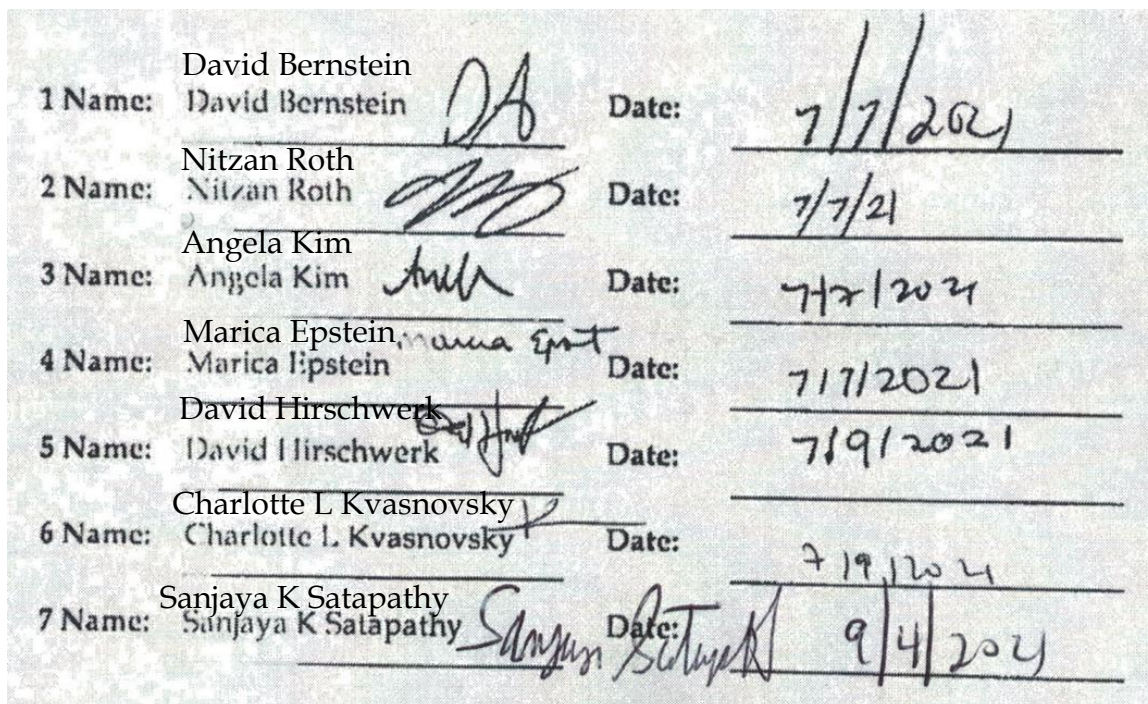 David Bernstein
1 Name: David Bernstein DB Date: 7/7/2021
Nitzan Roth
2 Name: Nitzan Roth Date: 7/7/21
Angela Kim
3 Name: Angela Kim Date: 7/7/2021
Marica Epstein
4 Name: Marica Epstein Date: 7/7/2021
David Hirschwerk
5 Name: David Hirschwerk Date: 7/9/2021
Charlotte L Kvasnovsky
6 Name: Charlotte L Kvasnovsky Date: 7/9/2021
Sanjaya K Satapathy
7 Name: Sanjaya K Satapathy Date: 9/4/2021